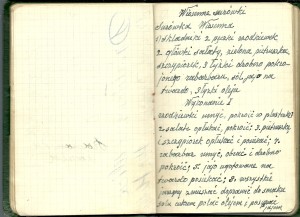 Wiosenne surówki
Surówka Wiosenna
1) Składniki 2 pęczki rzodkiewek
2 główki sałaty, zielona pietruszka,
szczypiorek, 3 łyżki drobno pokro-
jonego rabarbaru, sól, jajo na
twardo, 3 łyżki oleju
Wykonanie 1
rzodkiewki umyć, pokroić w plasterki
2 sałatę opłukać, pokroić; 3. pietruszkę
i szczypiorek opłukać i posiekać; 4.
rabarbar umyć, obrać i drobno
pokroić; 5. jajo ugotowane na
twardo posiekać; 6. wszystkie
zmieszać doprawić do smaku
solą cukrem polać olejem i posypać
jajem